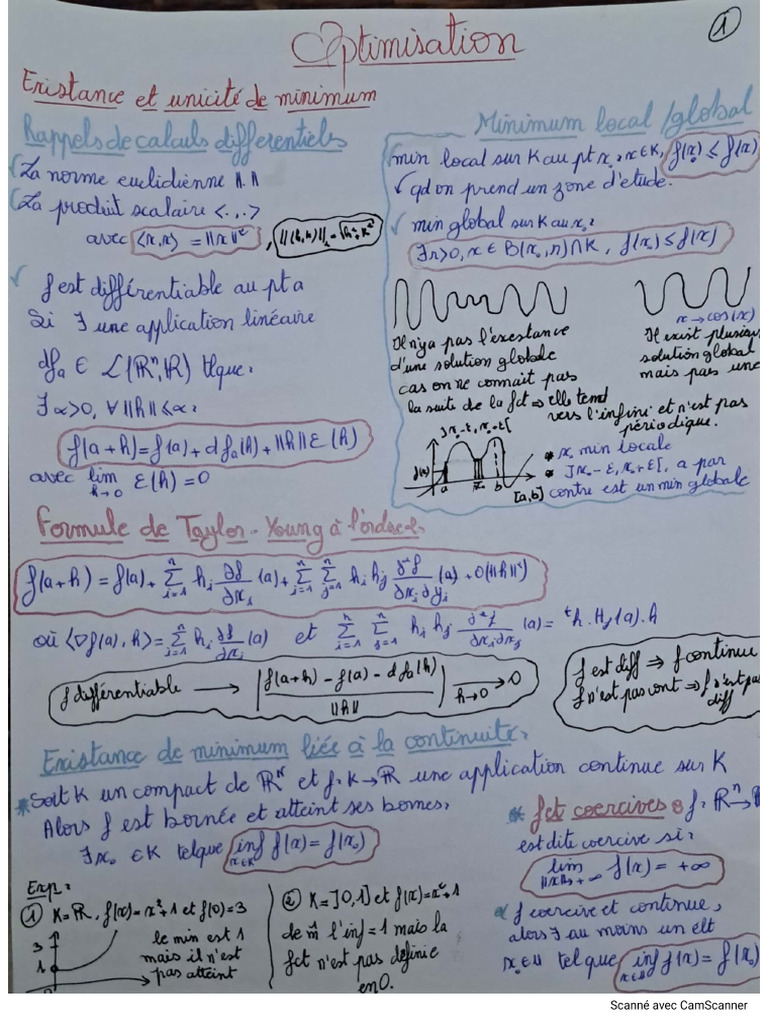 1
Optimisation
Existance et unicité de minimum
Rappels de calculs differentiels
La norme euclidienne ||.||
La produit scalaire <.,.>
avec <x,x> = ||x||²,
f est différentiable au pt a
Si ∃ une application linéaire
df_a ∈ L(ℝⁿ,ℝ) tlque:
∃ α>0, ∀ ||h|| ≤ α:
f(a+h) = f(a) + df_a(h) + ||h|| ε(h)
avec lim_{h→0} ε(h) = 0
Minimum local /global
min local sur K au pt x₀, x∈K, f(x₀) ≤ f(x)
qd on prend un zone d'etude.
min global sur K au x₀:
∃ r>0, x ∈ B(x₀,r)∩K, f(x₀) ≤ f(x)
Il n'ya pas l'existance
d'une solution globale
cas on ne connait pas
la suite de la fct ⇒ elle tend
vers l'infini et n'est pas
périodique.
x→cos(x)
Il exist plusieu
solution global
mais pas une
f(x)
a
b
[a,b]
* x₀ min locale
* ]x₀-ε, x₀+ε[, a par
contre est un min globale
Formule de Taylor-Young à l'ordre 2
f(a+h) = f(a) + Σ_{i=1}^{n} h_i ∂f/∂x_i (a) + Σ_{i=1}^{n} Σ_{j=1}^{n} h_i h_j ∂²f/∂x_i∂y_i (a) + O(||h||²)
où <∇f(a), h> = Σ_{i=1}^{n} h_i ∂f/∂x_i (a) et Σ_{i=1}^{n} Σ_{j=1}^{n} h_i h_j ∂²f/∂x_i∂x_j (a) = ᵗh.H_f(a).h
f différentiable → |f(a+h) - f(a) - df_a(h) / ||h||| →_{h→0} 0
f est diff ⇒ f continue
f n'est pas cont ⇒ f n'est pas
diff
Existance de minimum liée à la continuité:
* Soit K un compact de ℝⁿ et f: K→ℝ une application continue sur K
Alors f est bornée et atteint ses bornes,
∃ x₀ ∈ K telque inf_{x∈K} f(x) = f(x₀)
Exp:
① K=ℝ, f(x)=x²+1 et f(0)=3
3
1
le min est 1
mais il n'est
pas atteint
② K=]0,1] et f(x)=x²+1
de m̂ l'inf = 1 mais la
fct n'est pas définie
en 0.
* fct coercives: f: ℝⁿ→
est dite coercive si:
lim_{||x||→+∞} f(x) = +∞
f coercive et continue,
alors ∃ au moins un elt
tel que inf f(x) = f(x₀)
Scanné avec CamScanner